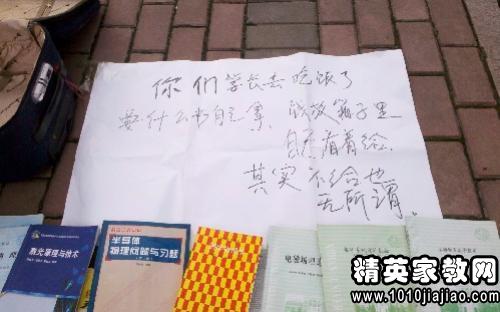 你们学长去吃饭了
要什么书自己拿 钱放箱子里
自己看着给
其实不给也
无所谓。
激光原理与技术
半导体
物理问题与习题
精英家教网
www.1010jiajiao.com